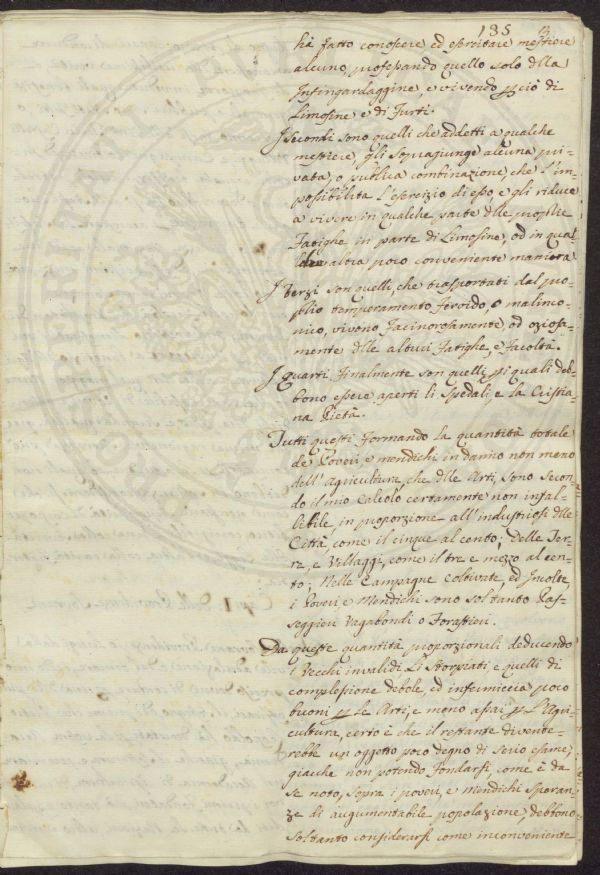 135
hà fatto conoscere ed esercitare mestiere
alcuno, professando quello solo della
Infingardaggine, e vivendo per ciò di
Limosine e di Furti.
I secondi sono quelli che addetti a qualche
mestiere, gli sopragiunge alcuna pri-
vata, o publica combinazione, che l'im-
possibilita l'esercizio di esso, e gli riduce
a vivere in qualche parte dlle proprie
Fatighe in parte di Limosine, od in qual
altra poco conveniente maniera
I terzi son quelli, che trasportati dal pro-
prio temperamento Fervido, o malinco-
nico, vivono Facinorosamente, od oziosa-
mente dlle altrui Fatighe, e Facoltà.
I quarti Finalmente son quelli, per i quali deb-
bono essere aperti li Spedali, e la Cristia-
na Pietà.
Tutti questi Formando la quantità totale
de Poveri, e mendichi in danno non meno
dell'Agricultura, che dlle Arti, sono secon-
do il mio Calcolo certamente non infal-
libile, in proporzione all'industriosi dlle
Città, come il cinque al cento; Delle Ter-
re, e Villaggi, come il tre e mezzo al cen-
to; Nelle Campagne Coltivate, ed Incolte
i Poveri, e Mendichi sono soltanto Pas-
seggieri Vagabondi o Forastieri.
Da queste quantità proporzionali deducendo
i Vecchi invalidi Li Storpiati e quelli di
complessione debole, ed infermiccia poco
buoni per le Arti, e meno assai per l'Agri-
cultura, certo è che il restante divente-
rebbe un oggetto poco degno di serio esame,
giacche non potendo Fondarsi, come è da
se noto, sopra i poveri, e mendichi speran-
ze di augumentabile popolazione, debbono
soltanto considerarsi come inconveniente